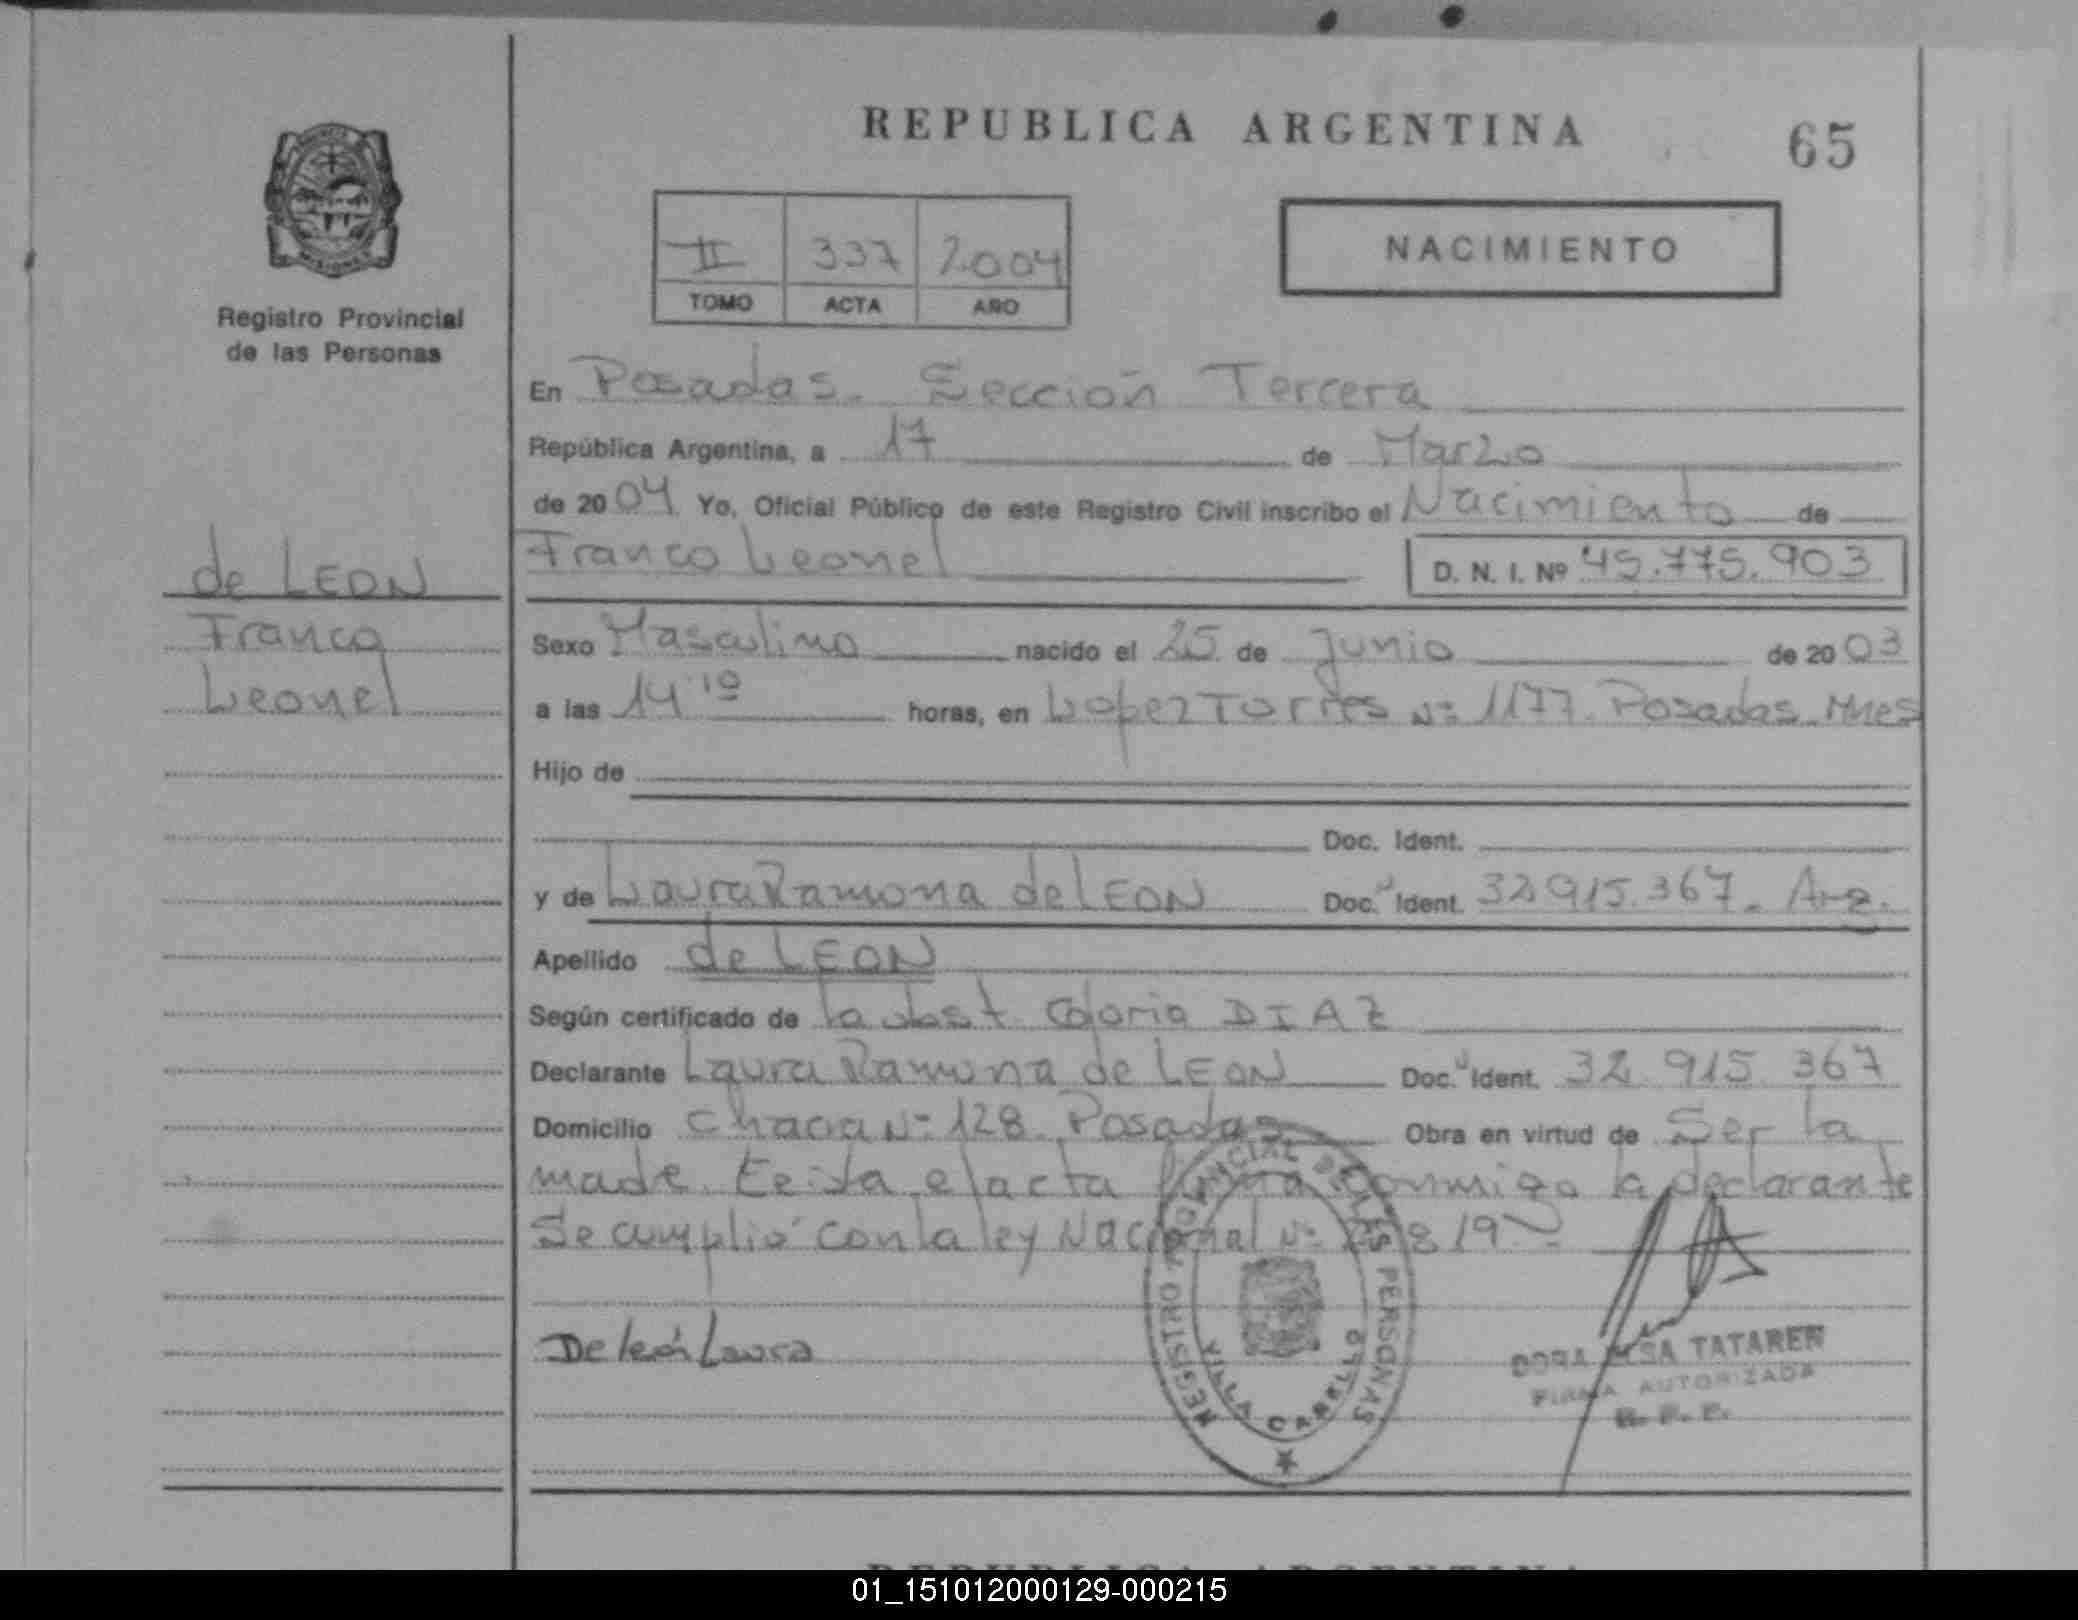 REPUBLICA ARGENTINA
65
MISIONES
Registro Provincial
de las Personas
II 337 2004
TOMO ACTA AÑO
NACIMIENTO
En Posadas. Sección Tercera
República Argentina, a 17 de Marzo
de 2004 Yo, Oficial Público de este Registro Civil inscribo el Nacimiento de
Franco Leonel D. N. I. Nº 45.775.903
de LEON
Franco
Leonel
Sexo Masculino nacido el 25 de Junio de 2003
a las 14:10 horas, en Lopez Torres Nº 1177. Posadas. Mnes
Hijo de
Doc. Ident.
y de Laura Ramona de LEON Doc. Ident. 32.915.367. Arg.
Apellido de LEON
Según certificado de la obst. Gloria DIAZ
Declarante Laura Ramona de LEON Doc. Ident. 32 915 367
Domicilio Chacra Nº 128 Posadas Obra en virtud de Ser la
madre. Leida el acta firma conmigo la declarante
Se cumplió con la ley Nacional Nº
De león Laura
REGISTRO PROVINCIAL DE LAS PERSONAS
VILLA CABELLO
TATAREN
FIRMA AUTORIZADA
R. P. P.
REPUBLICA ARGENTINA
01_151012000129-000215